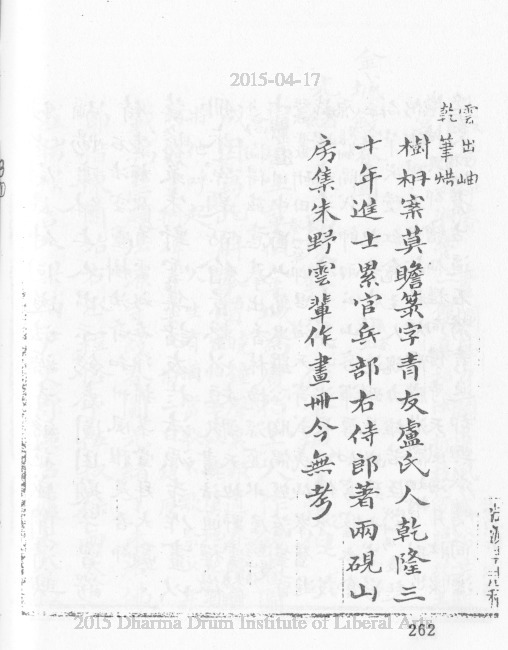 2015-04-17
雲出岫
乾筆烘
樹栩案莫瞻菉字青友盧氏人乾隆三
十年進士累官兵部右侍郎著兩硯山
房集朱野雲輩作畫冊今無考
2015 Dharma Drum Institute of Liberal Arts
262